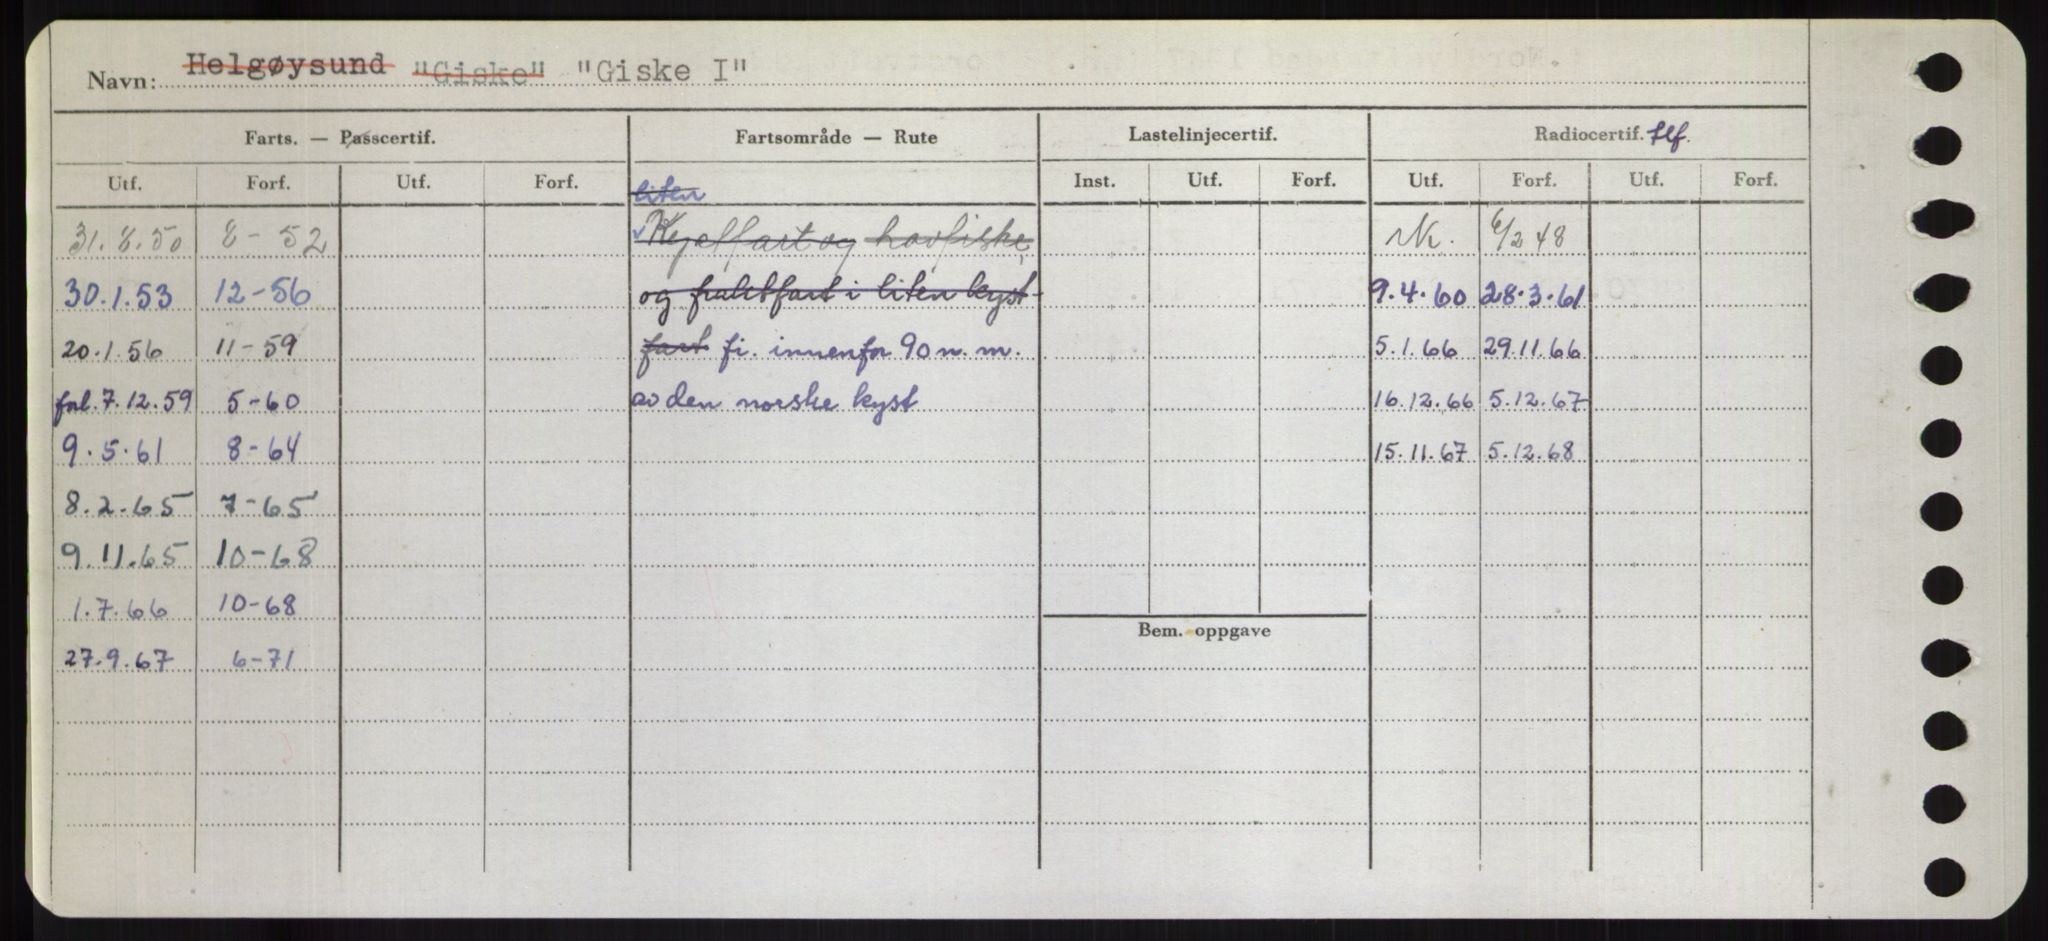 Navn: Helgøysund "Giske" "Giske I"
Farts. — Passcertif. Fartsområde — Rute Lastelinjecertif. Radiocertif. tlf.
Utf. Forf. Utf. Forf. Inst. Utf. Forf. Utf. Forf. Utf. Forf.
liten
31.8.50 8-52 Kystfart og havfiske 6/2 48
30.1.53 12-56 og fraktfart i liten kyst- 9.4.60 28.3.61
20.1.56 11-59 fart fi. innenfor 90 n.m. 5.1.66 29.11.66
forl. 7.12.59 5-60 av den norske kyst 16.12.66 5.12.67
9.5.61 8-64 15.11.67 5.12.68
8.2.65 7-65
9.11.65 10-68
1.7.66 10-68
Bem. oppgave
27.9.67 6-71